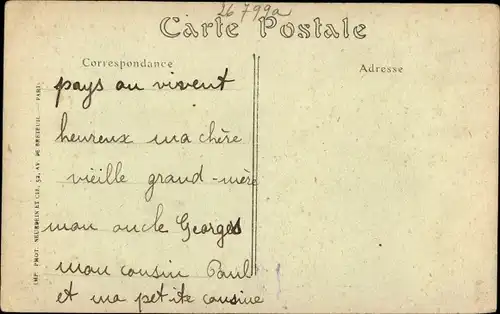 26799a
Carte Postale
Correspondance
Adresse
pays ou vivent
heureux ma chère
vieille grand-mère
mon oncle Georges
mon cousin Paul
et ma petite cousine
IMP. PHOT. NEURDEIN ET CIE, 52, AV. DE BRETEUIL. PARIS